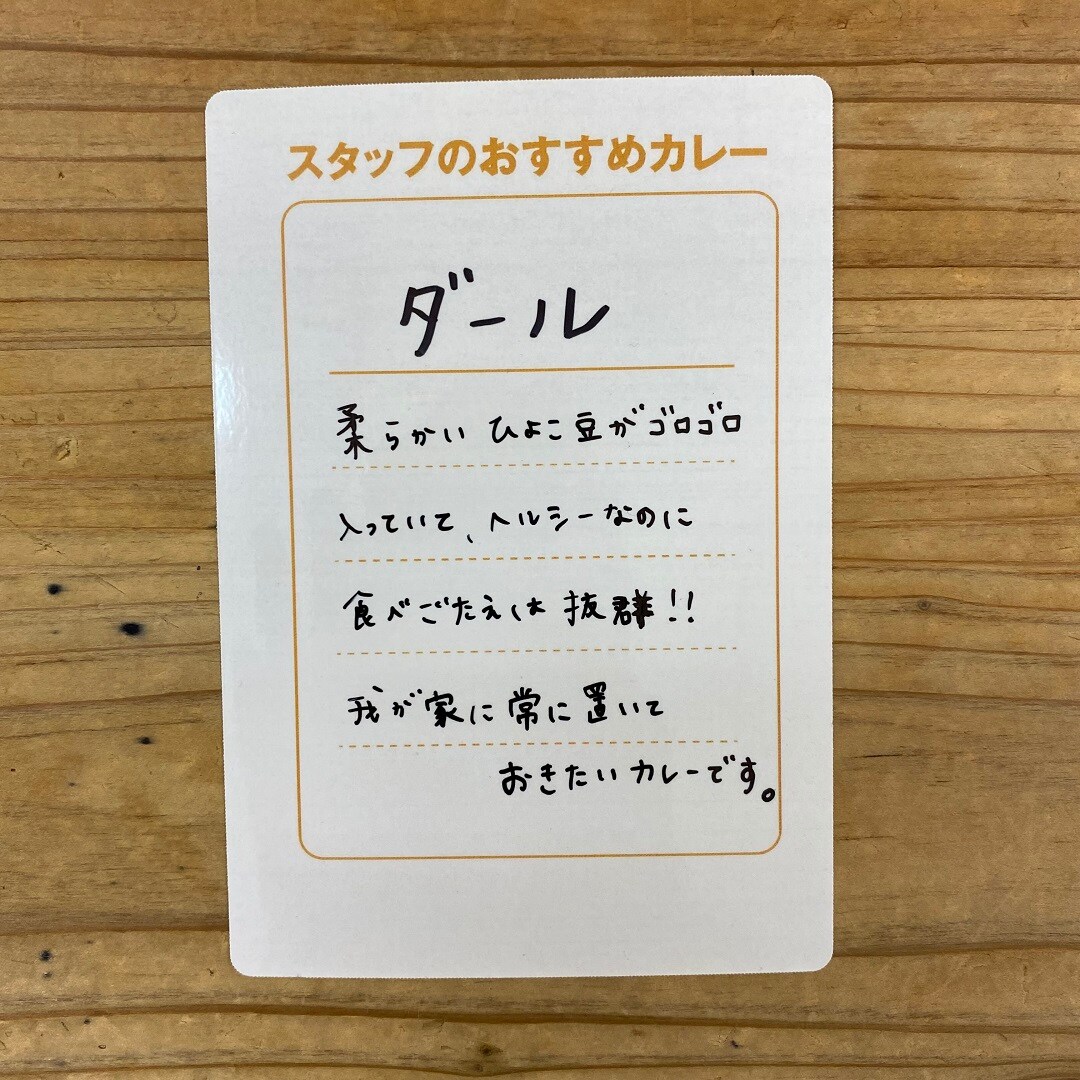 スタッフのおすすめカレー
ダール
柔らかい ひよこ豆がゴロゴロ
入っていて、ヘルシーなのに
食べごたえは 抜群!!
我が家に常に置いて
おきたいカレーです。